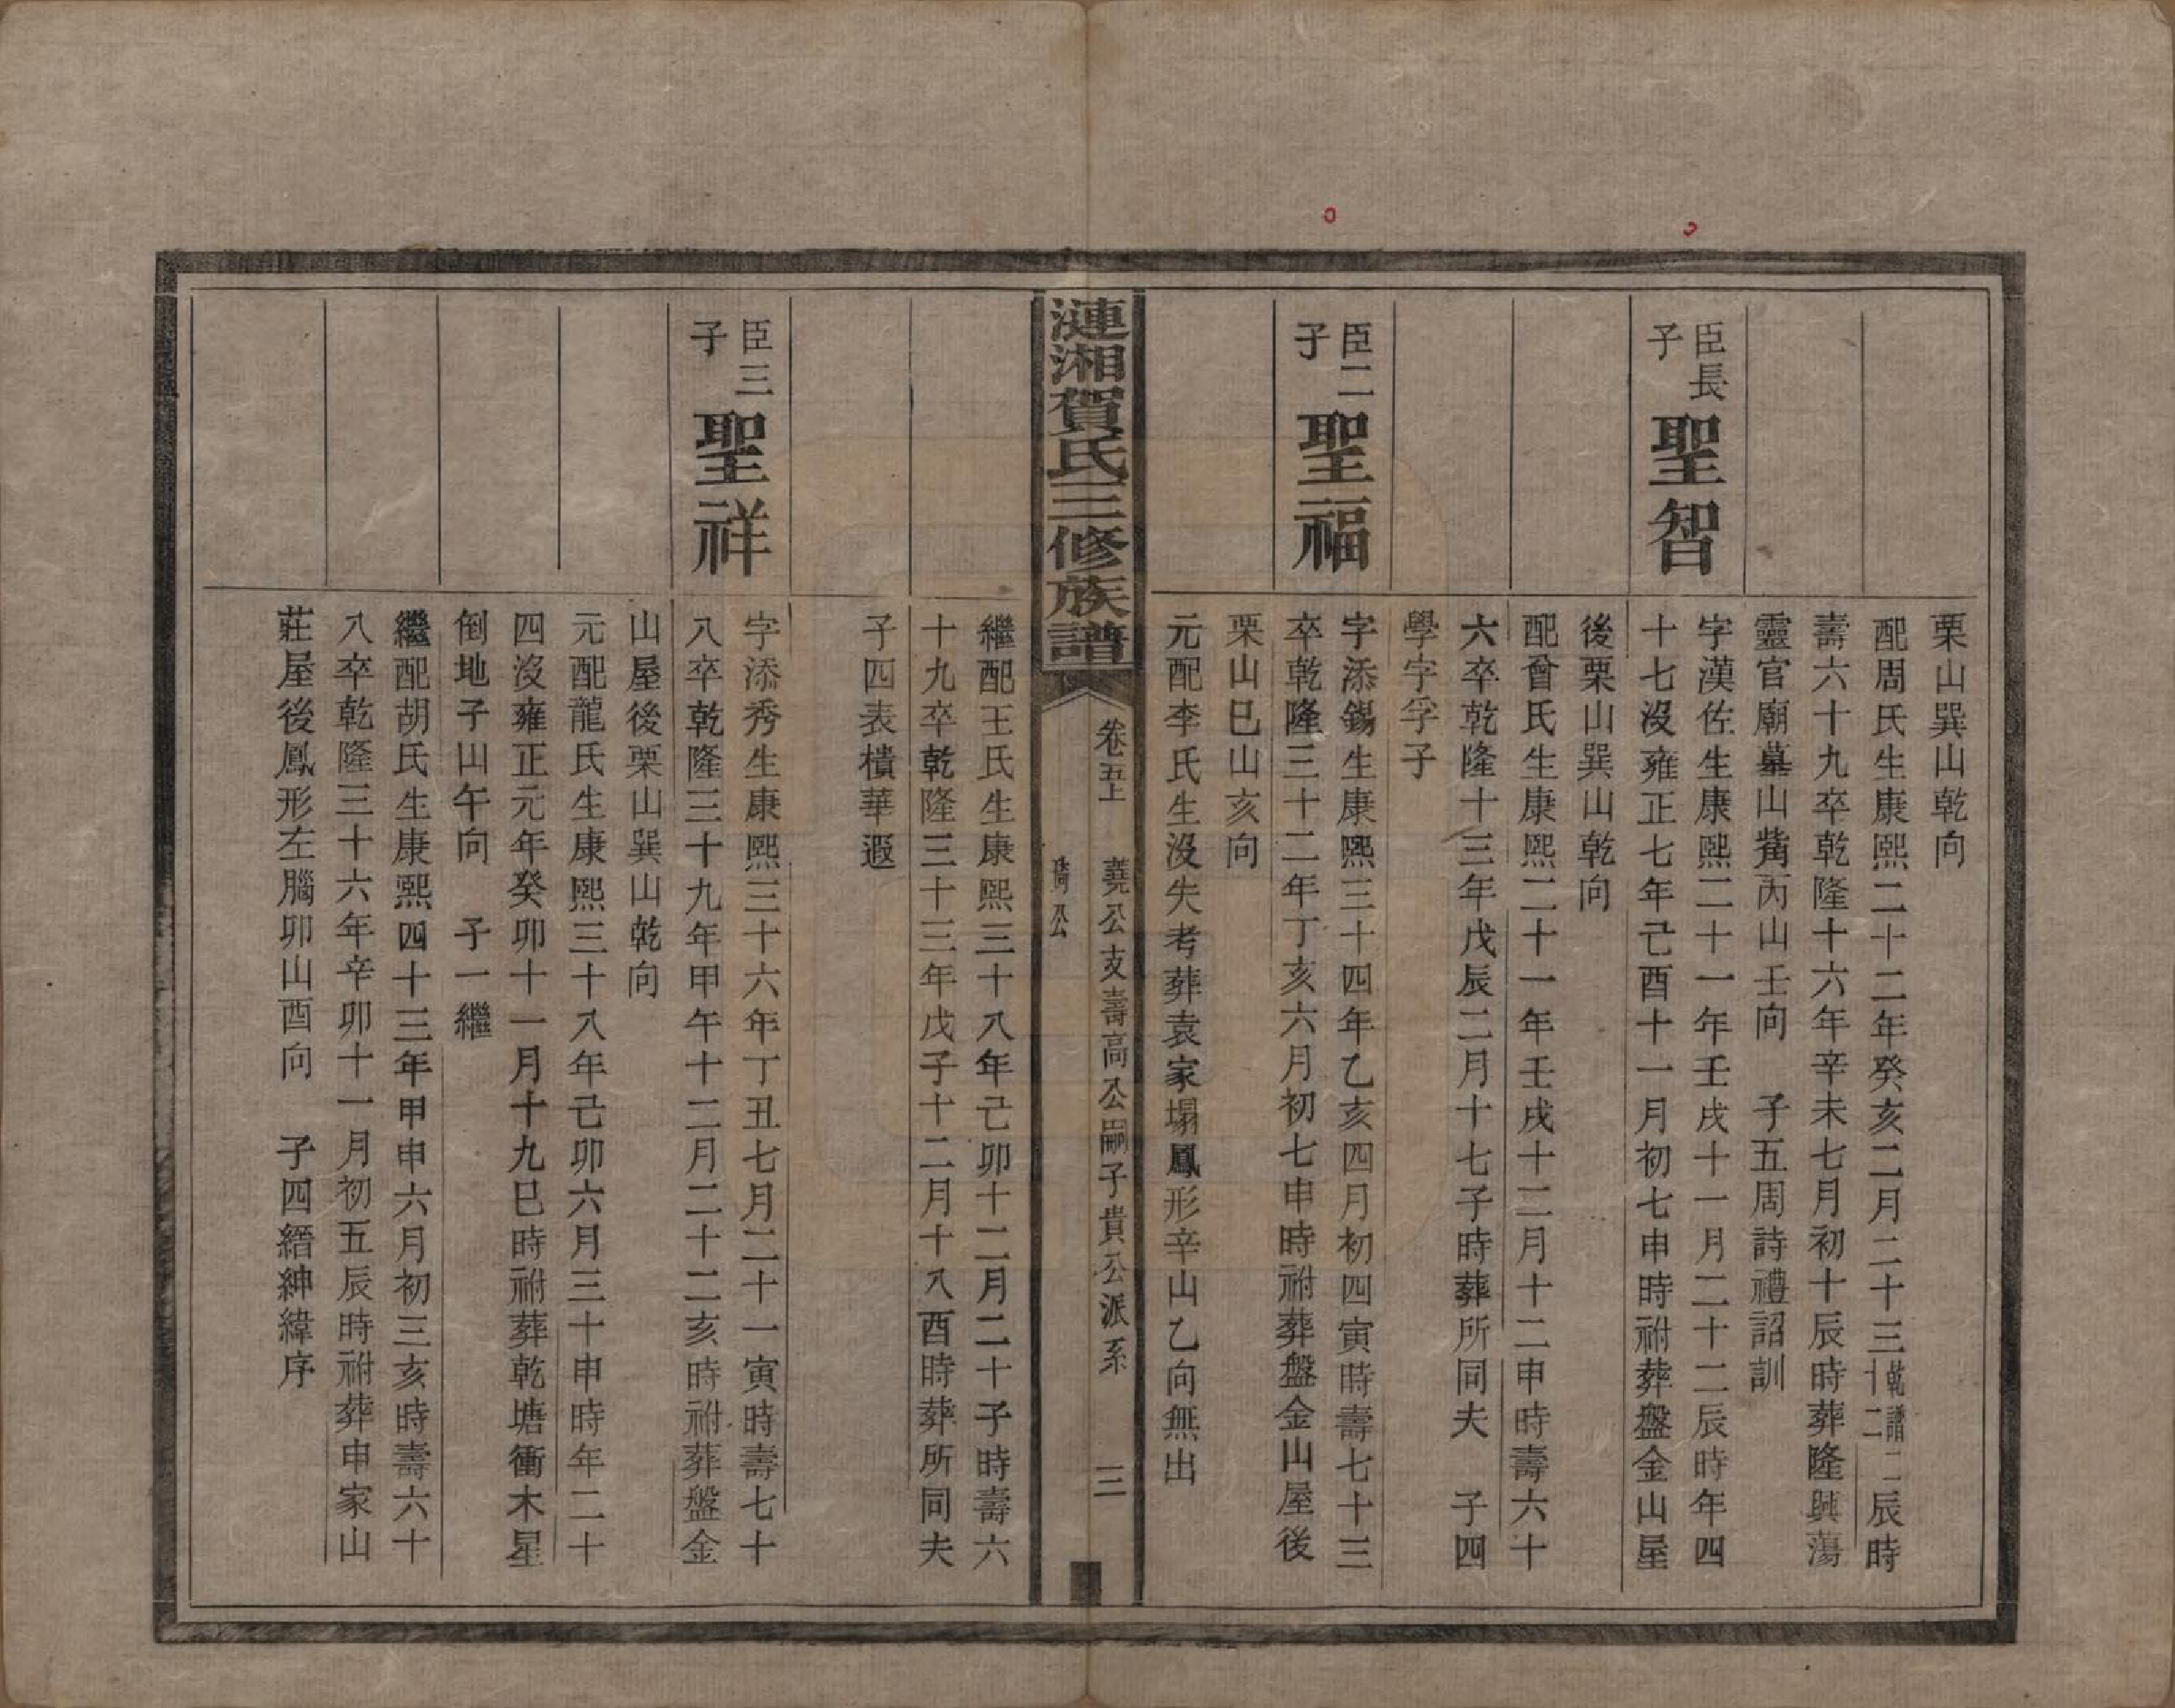 栗山巽山乾向
配周氏生康熙二十二年癸亥二月二十三乾譜十二二辰時
壽六十九卒乾隆十六年辛未七月初十辰時葬隆興蕩
靈官廟墓山嘴丙山壬向　子五周詩禮詔訓
臣長子 聖智
字漢佐生康熙二十一年壬戌十一月二十二辰時年四
十七沒雍正七年己酉十一月初七申時祔葬盤金山屋
後栗山巽山乾向
配曾氏生康熙二十一年壬戌十二月十二申時壽六十
六卒乾隆十三年戊辰二月十七子時葬所同夫　子四
學字孚子
臣二子 聖福
字添錫生康熙三十四年乙亥四月初四寅時壽七十三
卒乾隆三十二年丁亥六月初七申時祔葬盤金山屋後
栗山巳山亥向
元配李氏生沒失考葬袁家塌鳳形辛山乙向無出
漣湘賀氏三修族譜
卷五上　蕘公支壽高公嗣子貴公派系　三
公
繼配王氏生康熙三十八年己卯十二月二十子時壽六
十九卒乾隆三十三年戊子十二月十八酉時葬所同夫
子四表樻華遐
臣三子 聖祥
字添秀生康熙三十六年丁丑七月二十一寅時壽七十
八卒乾隆三十九年甲午十二月二十二亥時祔葬盤金
山屋後栗山巽山乾向
元配龍氏生康熙三十八年己卯六月三十申時年二十
四沒雍正元年癸卯十一月十九巳時祔葬乾塘衝木星
倒地子山午向　子一繼
繼配胡氏生康熙四十三年甲申六月初三亥時壽六十
八卒乾隆三十六年辛卯十一月初五辰時祔葬申家山
莊屋後鳳形左腦卯山酉向　子四縉紳緯序